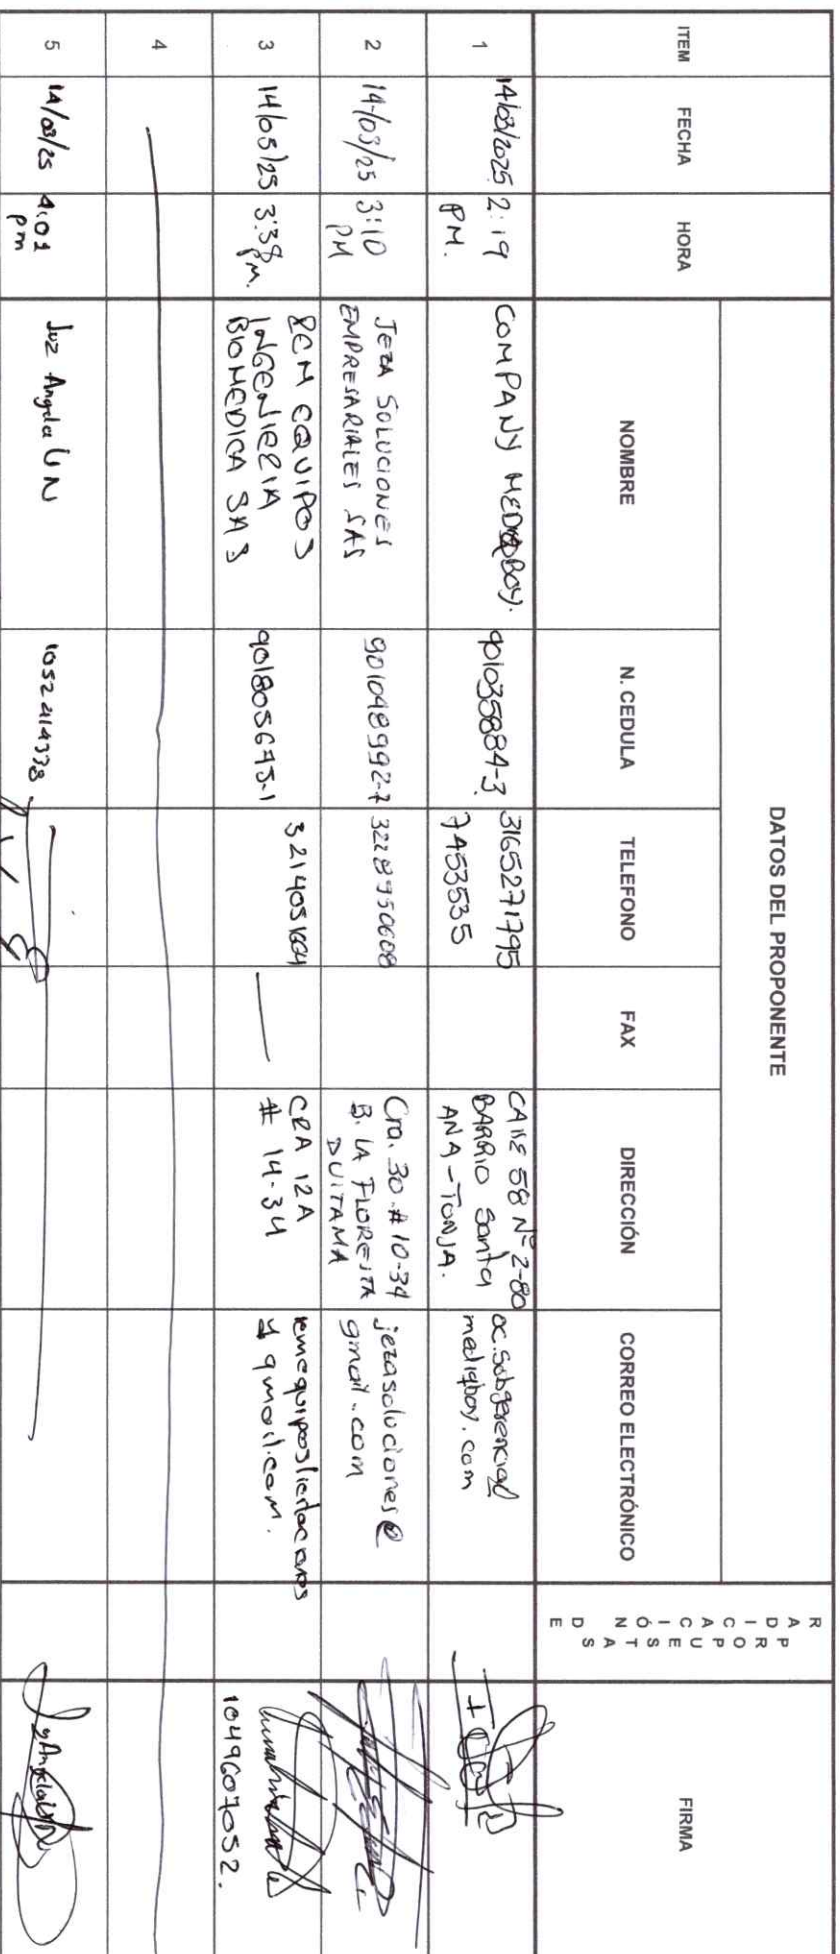 DATOS DEL PROPONENTE
ITEM FECHA HORA NOMBRE N. CEDULA TELEFONO FAX DIRECCIÓN CORREO ELECTRÓNICO RADICACIÓN DE PROPUESTAS FIRMA
1 14/03/2025 2:19 PM. COMPANY MEDIQBOY. 901035884-3. 3165271795 7453535 CAllE 58 Nº 2-80 BARRIO Santa ANA - TUNJA. oc.subgerencia@ mediqboy.com
2 14/03/25 3:10 PM JEZA SOLUCIONES EMPRESARIALES SAS 901048992-7 3228950608 Cra. 30 # 10-34 B. LA FLORESTA DUITAMA jezasoluciones@ gmail.com
3 14/03/25 3:38 PM. RCM EQUIPOS INGENIERIA BIOMEDICA SAS 901805645-1 3214051664 — CRA 12A # 14-34 gmail.com. 1049607052.
4
5 14/03/25 4:01 pm Luz Angela 1052414338